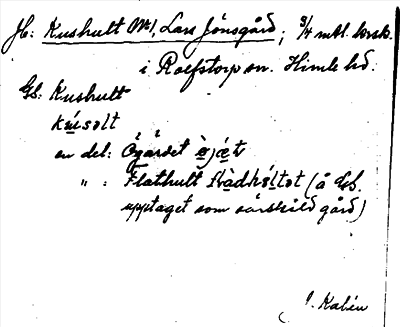 Jb: Kushult Nº1, Lars Jönsgård; 3/4 mtl. krsk.
i Rolfstorp sn. Himle hd.
Gb: Kushult
kúsəlt
en del: Ögärdet
" : Flathult (å Gb.
upptaget som särskild gård)
J. Kalén